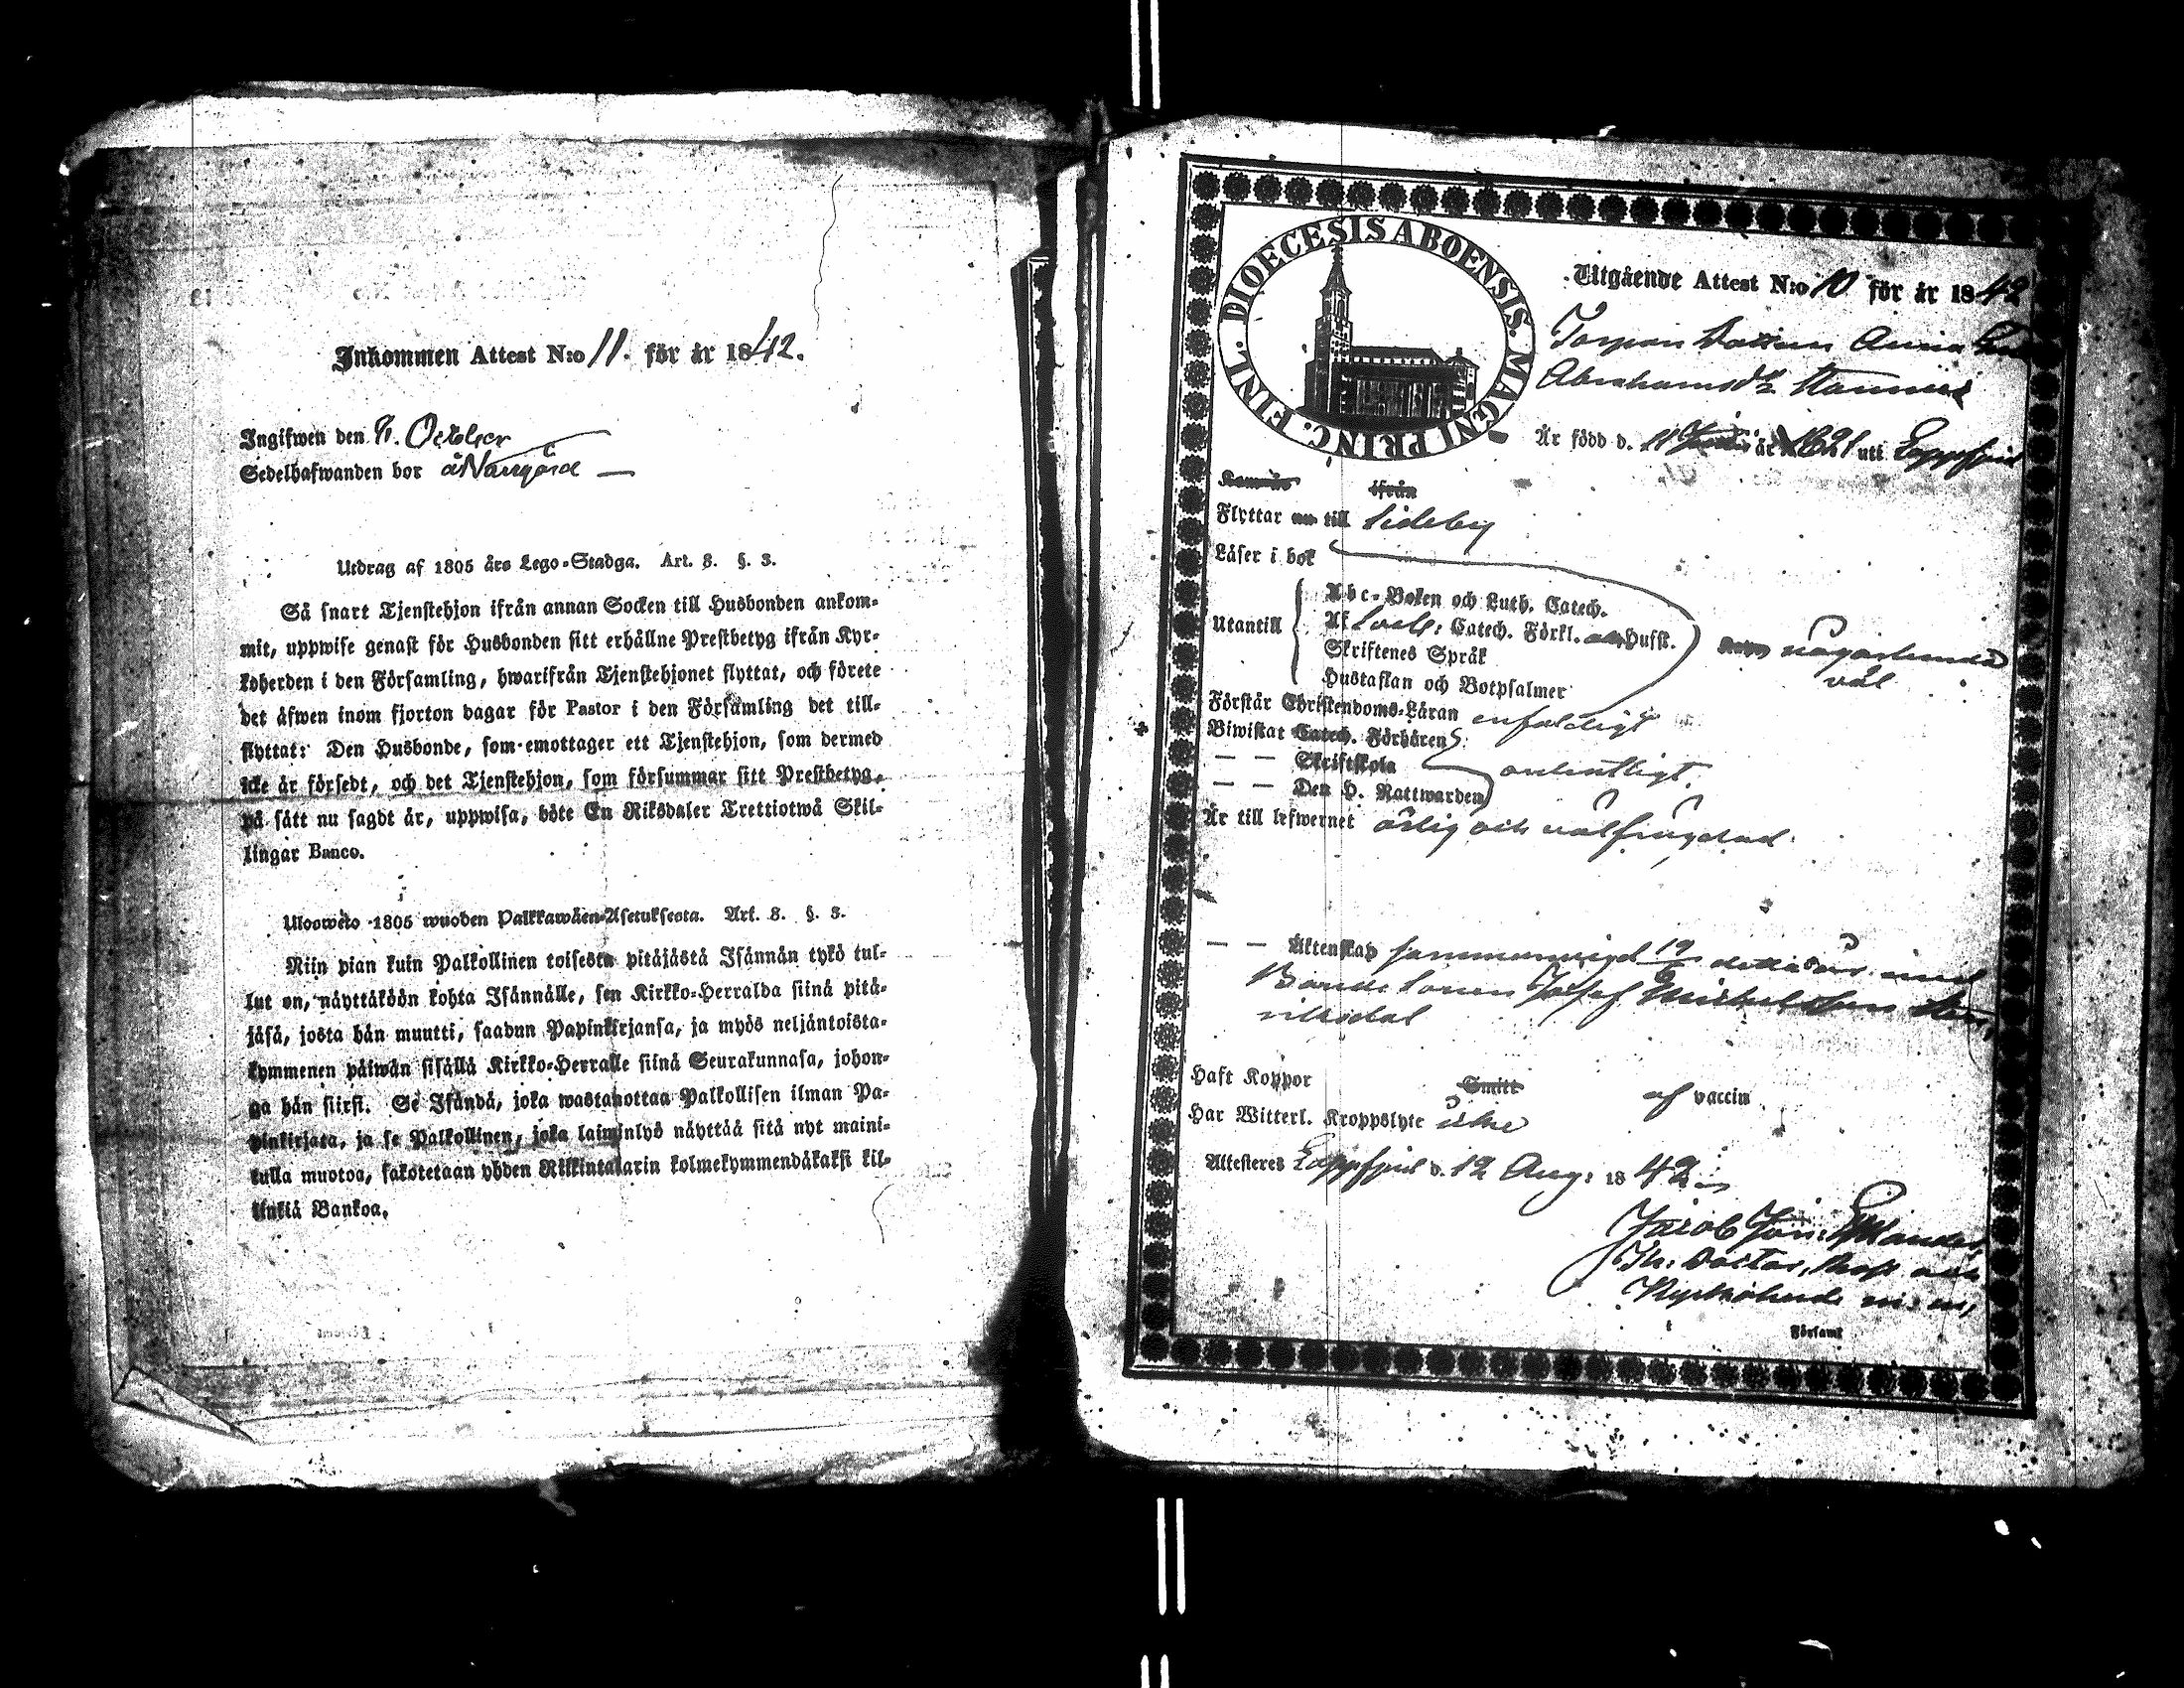 Inkommen Attest N:o 11. för år 1842.
Ingifwen den 8. October
Sedelhafwanden bor å Närgård —
Utdrag af 1805 års Lego-Stadga. Art. 8. §. 3.
Så snart Tjenstehjon ifrån annan Socken till Husbonden ankom-
mit, uppwise genast för Husbonden sitt erhållne Prestbetyg ifrån Kyr-
koherden i den Församling, hwarifrån Tjenstehjonet flyttat, och förete
det äfwen inom fjorton dagar för Pastor i den Församling det till-
flyttat: Den Husbonde, som emottager ett Tjenstehjon, som dermed
icke är försedt, och det Tjenstehjon, som försummar sitt Prestbetyg,
på sätt nu sagdt är, uppwisa, böte En Riksdaler Trettiotwå Skil-
lingar Banco.
Uloswéto 1805 wuoden Palkkawäen-Asetuksesta. Art. 8. §. 3.
Niin pian kuin Palkollinen toisesta pitäjästä Isännän tykö tul-
lut on, näyttäköön kohta Isännälle, sen Kirkko-Herralda siinä pitä-
jäsä, josta hän muutti, saadun Papinkirjansa, ja myös neljäntoista-
kymmenen päiwän sisällä Kirkko-Herralle siinä Seurakunnasa, johon-
ga hän siirsi. Se Isändä, joka wastanottaa Palkollisen ilman Pa-
pinkirjata, ja se Palkollinen, joka laiminlyö näyttää sitä nyt maini-
tulla muotoa, sakotetaan yhden Riikintalarin kolmekymmendäkaksi kil-
linkiä Bankoa.
DIOECESIS ABOENSIS. MAGNI PRINC. FINL.
Utgående Attest N:o 10 för år 1842
Torpare Dottern Anna
Abrahamsdr
Är född d. 11 år 1821 uti Lappfjerd
Kommit ifrån
Flyttar nu till Sideby
Läser i bok
Utantill
Abc-Boken och Luth. Catech.
Af Catech. Förkl. Hufst.
Skriftenes Språk
Hustaflan och Botpsalmer
någorlunda
väl
Förstår Christendoms-Läran enfaldigt
Biwistat Catech. Förhören
— — Skriftskola ordentligt.
— — Den H. Nattwarden
Är till lefwernet ärlig och välfrägdad
— — Äktenskap sammanvigd 19 detta år med
Bonde Sonen Josef Michelsson
Haft Koppor Smitt af vaccin
Har Witterl. Kroppslyte icke
Attesteras Lappfjerd d. 12 Aug: 1842
Jacob Jon:
Th: Doctor, Prost och
Kyrkoherde m: m,
Församl